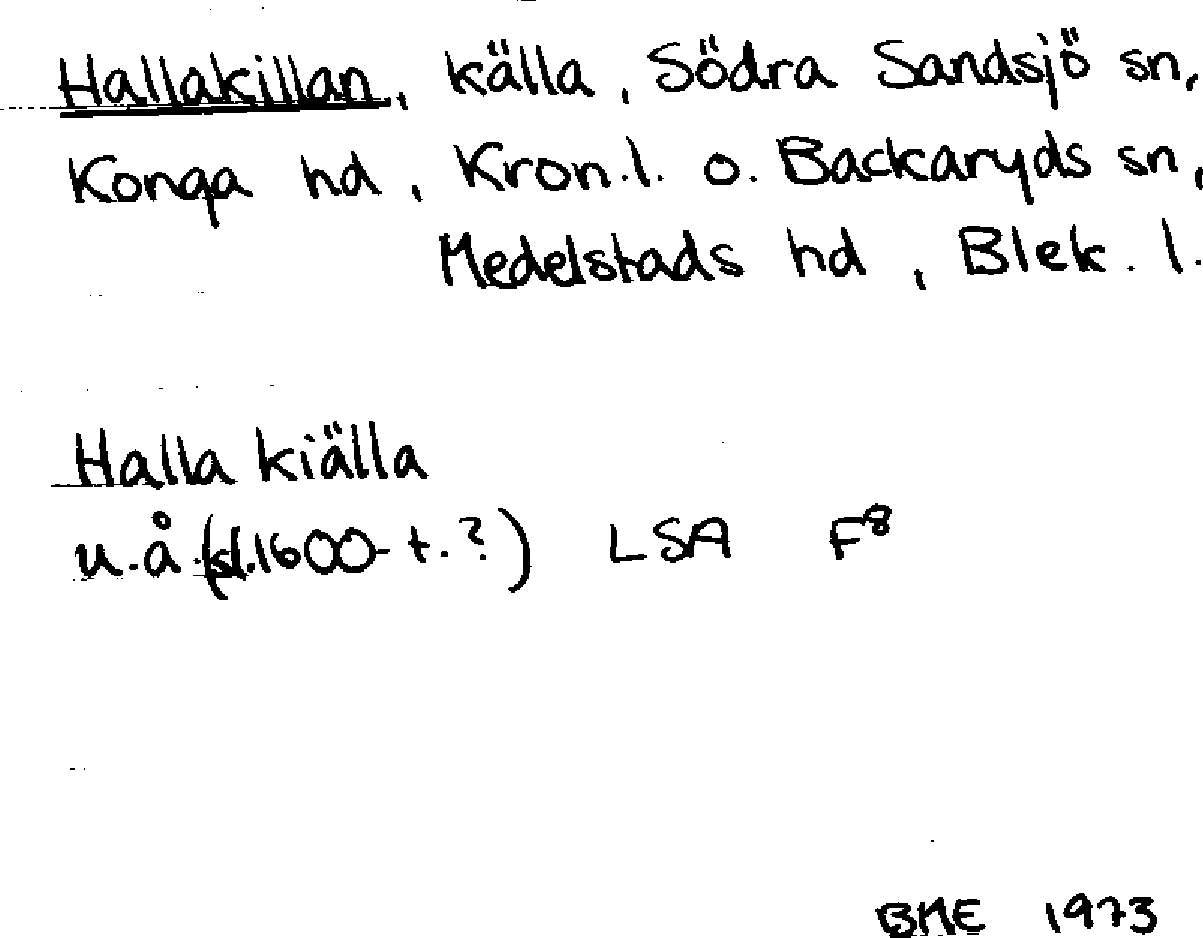 Hallakillan, källa, Södra Sandsjö sn,
Konga hd, Kron.l. o. Backaryds sn,
Medelstads hd, Blek. l.
Halla kiälla
u.å. (sl.1600-t.?) LSA F8
BME 1973